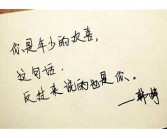 你是年少的欢喜，
这句话，
反过来说的也是你。
——韩婷